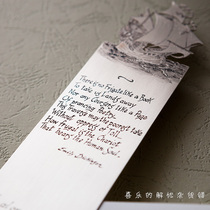 There is no Frigate like a Book
To take us Lands away
Nor any Coursers like a Page
Of prancing Poetry.
This Traverse may the poorest take
Without oppress of Toll
How frugal is the Chariot
That bears the Human Soul.
Emily Dickinson
喜乐的解忧杂货铺